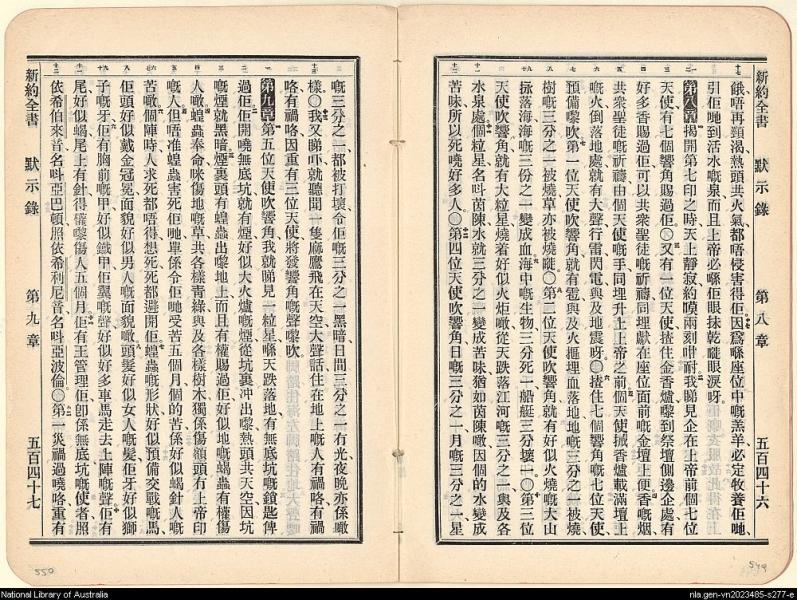 新約全書 默示錄 第八章 五百四十六
餓唔再頸渴熱頭共火氣都唔侵害得佢因爲喺座位中嘅羔羊必定牧養佢哋
引佢哋到活水嘅泉而且上帝必喺佢眼抹乾嚨眼淚呀
第八章 揭開第七印之時天上靜寂約嗼兩刻咁耐我睇見企在上帝前個七位
天使有七個響角賜過佢〇又有一位天使揸住金香爐嚟到祭壇側邊企處有
好多香賜過佢可以共衆聖徒嘅祈禱同埋獻在座位面前嘅金壇上便香嘅烟
共衆聖徒嘅祈禱由個天使嘅手同埋升上上帝之前個天使揻香爐載滿壇上
嘅火倒落地處就有大聲行雷閃電與及地震呀〇揸住七個響角嘅七位天使
預備嚟吹第一位天使吹響角就有雹與及火摳埋血落地地嘅三分之一被燒
樹嘅三分之一被燒草亦被燒嚨〇第二位天使吹響角就有好似火燒嘅大山
拯落海海嘅三份之一變成血海中嘅生物三分死一船艇三分壞一〇第三位
天使吹響角就有大粒星燒着好似火炬噉從天跌落江河嘅三分之一與及各
水泉處個粒星名呌茵陳水就三分之一變成苦味猶如茵陳噉因個的水變成
苦味所以死嘵好多人〇第四位天使吹響角日嘅三分之一月嘅三分之一星
549
嘅三分之一都被打壞令佢嘅三分之一黑暗日間三分之一有光夜晚亦係噉
樣〇我又睇吓就聽聞一隻鷹飛在天空大聲話住在地上嘅人有禍咯有禍
咯有禍咯因重有三位天使將發響角嘅聲嚟吹
第九章 第五位天使吹響角我就睇見一粒星喺天跌落地有無底坑嘅鎖匙俾
過佢佢開嘵無底坑就有烟好似大火爐嘅煙從坑裏冲出嚟熱頭共天空因坑
嘅煙就黑暗煙裏頭有蝗蟲出嚟地上而且有權賜過佢好似地嘅蝎蟲有權傷
人噉蝗蟲奉命咪傷地嘅草共各樣靑綠與及各樣樹木獨係傷額頭冇上帝印
嘅人但唔准蝗蟲害死佢哋單係令佢哋受苦五個月個的苦係好似蝎針人嘅
苦噉個陣時人求死都唔得想死死都避開佢蝗蟲嘅形狀好似預備交戰嘅馬
佢頭好似戴金冠冕面貌好似男人嘅面貌噉頭髮好似女人嘅髮佢牙好似獅
子嘅牙佢有胸前嘅甲好似鐵甲佢翼嘅聲好似好多車馬走去上陣嘅聲佢有
尾好似蝎尾上有針得權嚟傷人五個月佢有王管理佢卽係無底坑嘅使者照
依希伯來音名呌亞巴頓照依希利尼音名呌亞波倫〇第一災禍過嘵咯重有
新約全書 默示錄 第九章 五百四十七
550
National Library of Australia
nla.gen-vn2023485-s277-e